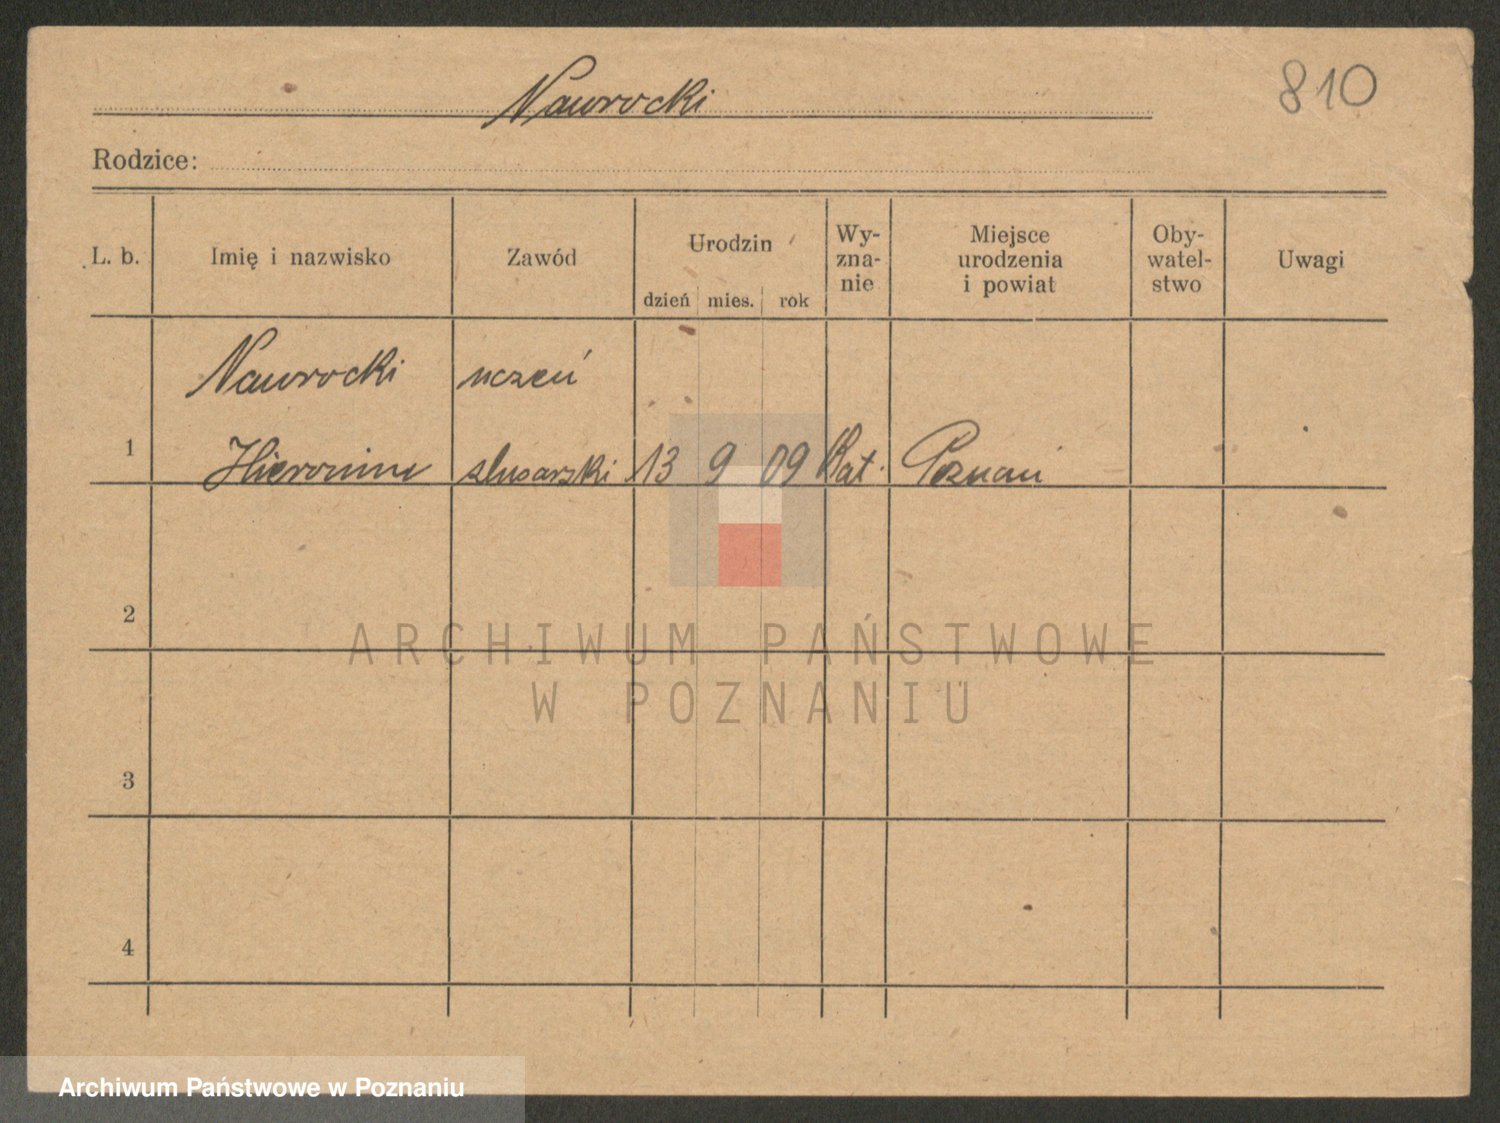 Nawrocki
810
Rodzice:
L. b.
Imię i nazwisko
Zawód
Urodzin
dzień mies. rok
Wy-
zna-
nie
Miejsce
urodzenia
i powiat
Oby-
watel-
stwo
Uwagi
Nawrocki uczeń
1 Hieronim slusarski 13 9 09 Kat. Poznań
2
3
4
ARCHIWUM PAŃSTWOWE
W POZNANIU
Archiwum Państwowe w Poznaniu